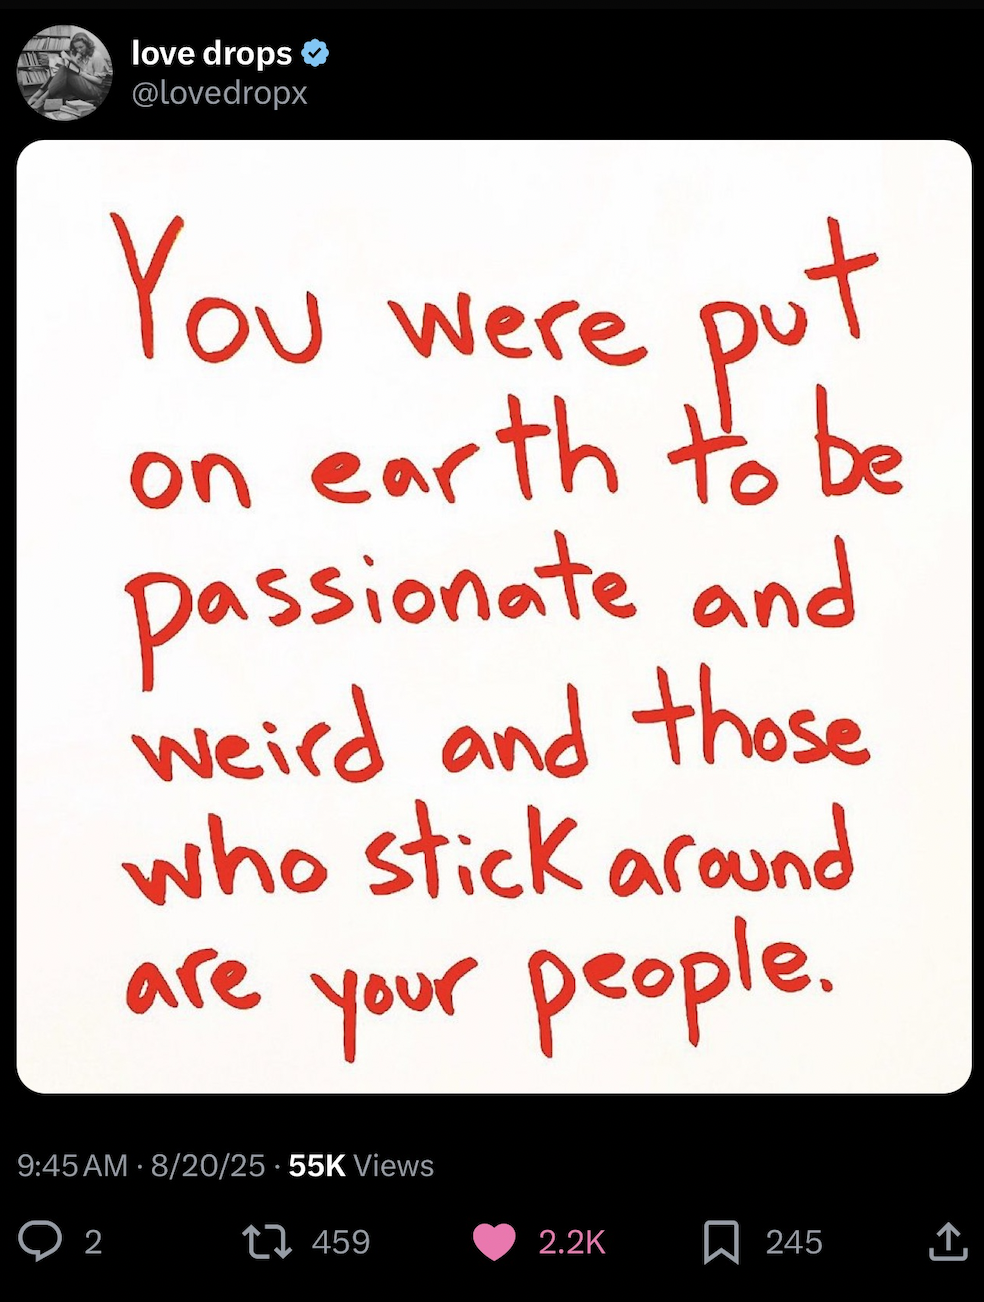 love drops
@lovedropx
You were put
on earth to be
passionate and
weird and those
who stick around
are your people.
9:45 AM · 8/20/25 · 55K Views
2 459 2.2K 245